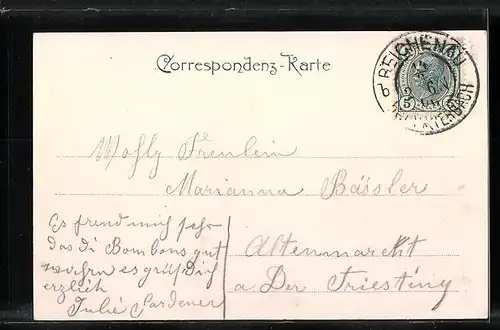 Correspondenz-Karte
REICHENAU
5
PAYERBACH
Wohlg Freulein
Marianna Bässler
Altenmarckt
a Der Triesting
Es freud mich sehr
das di Bombons gut
warhrn es grüß Dich
erzlich
Julie Gardener